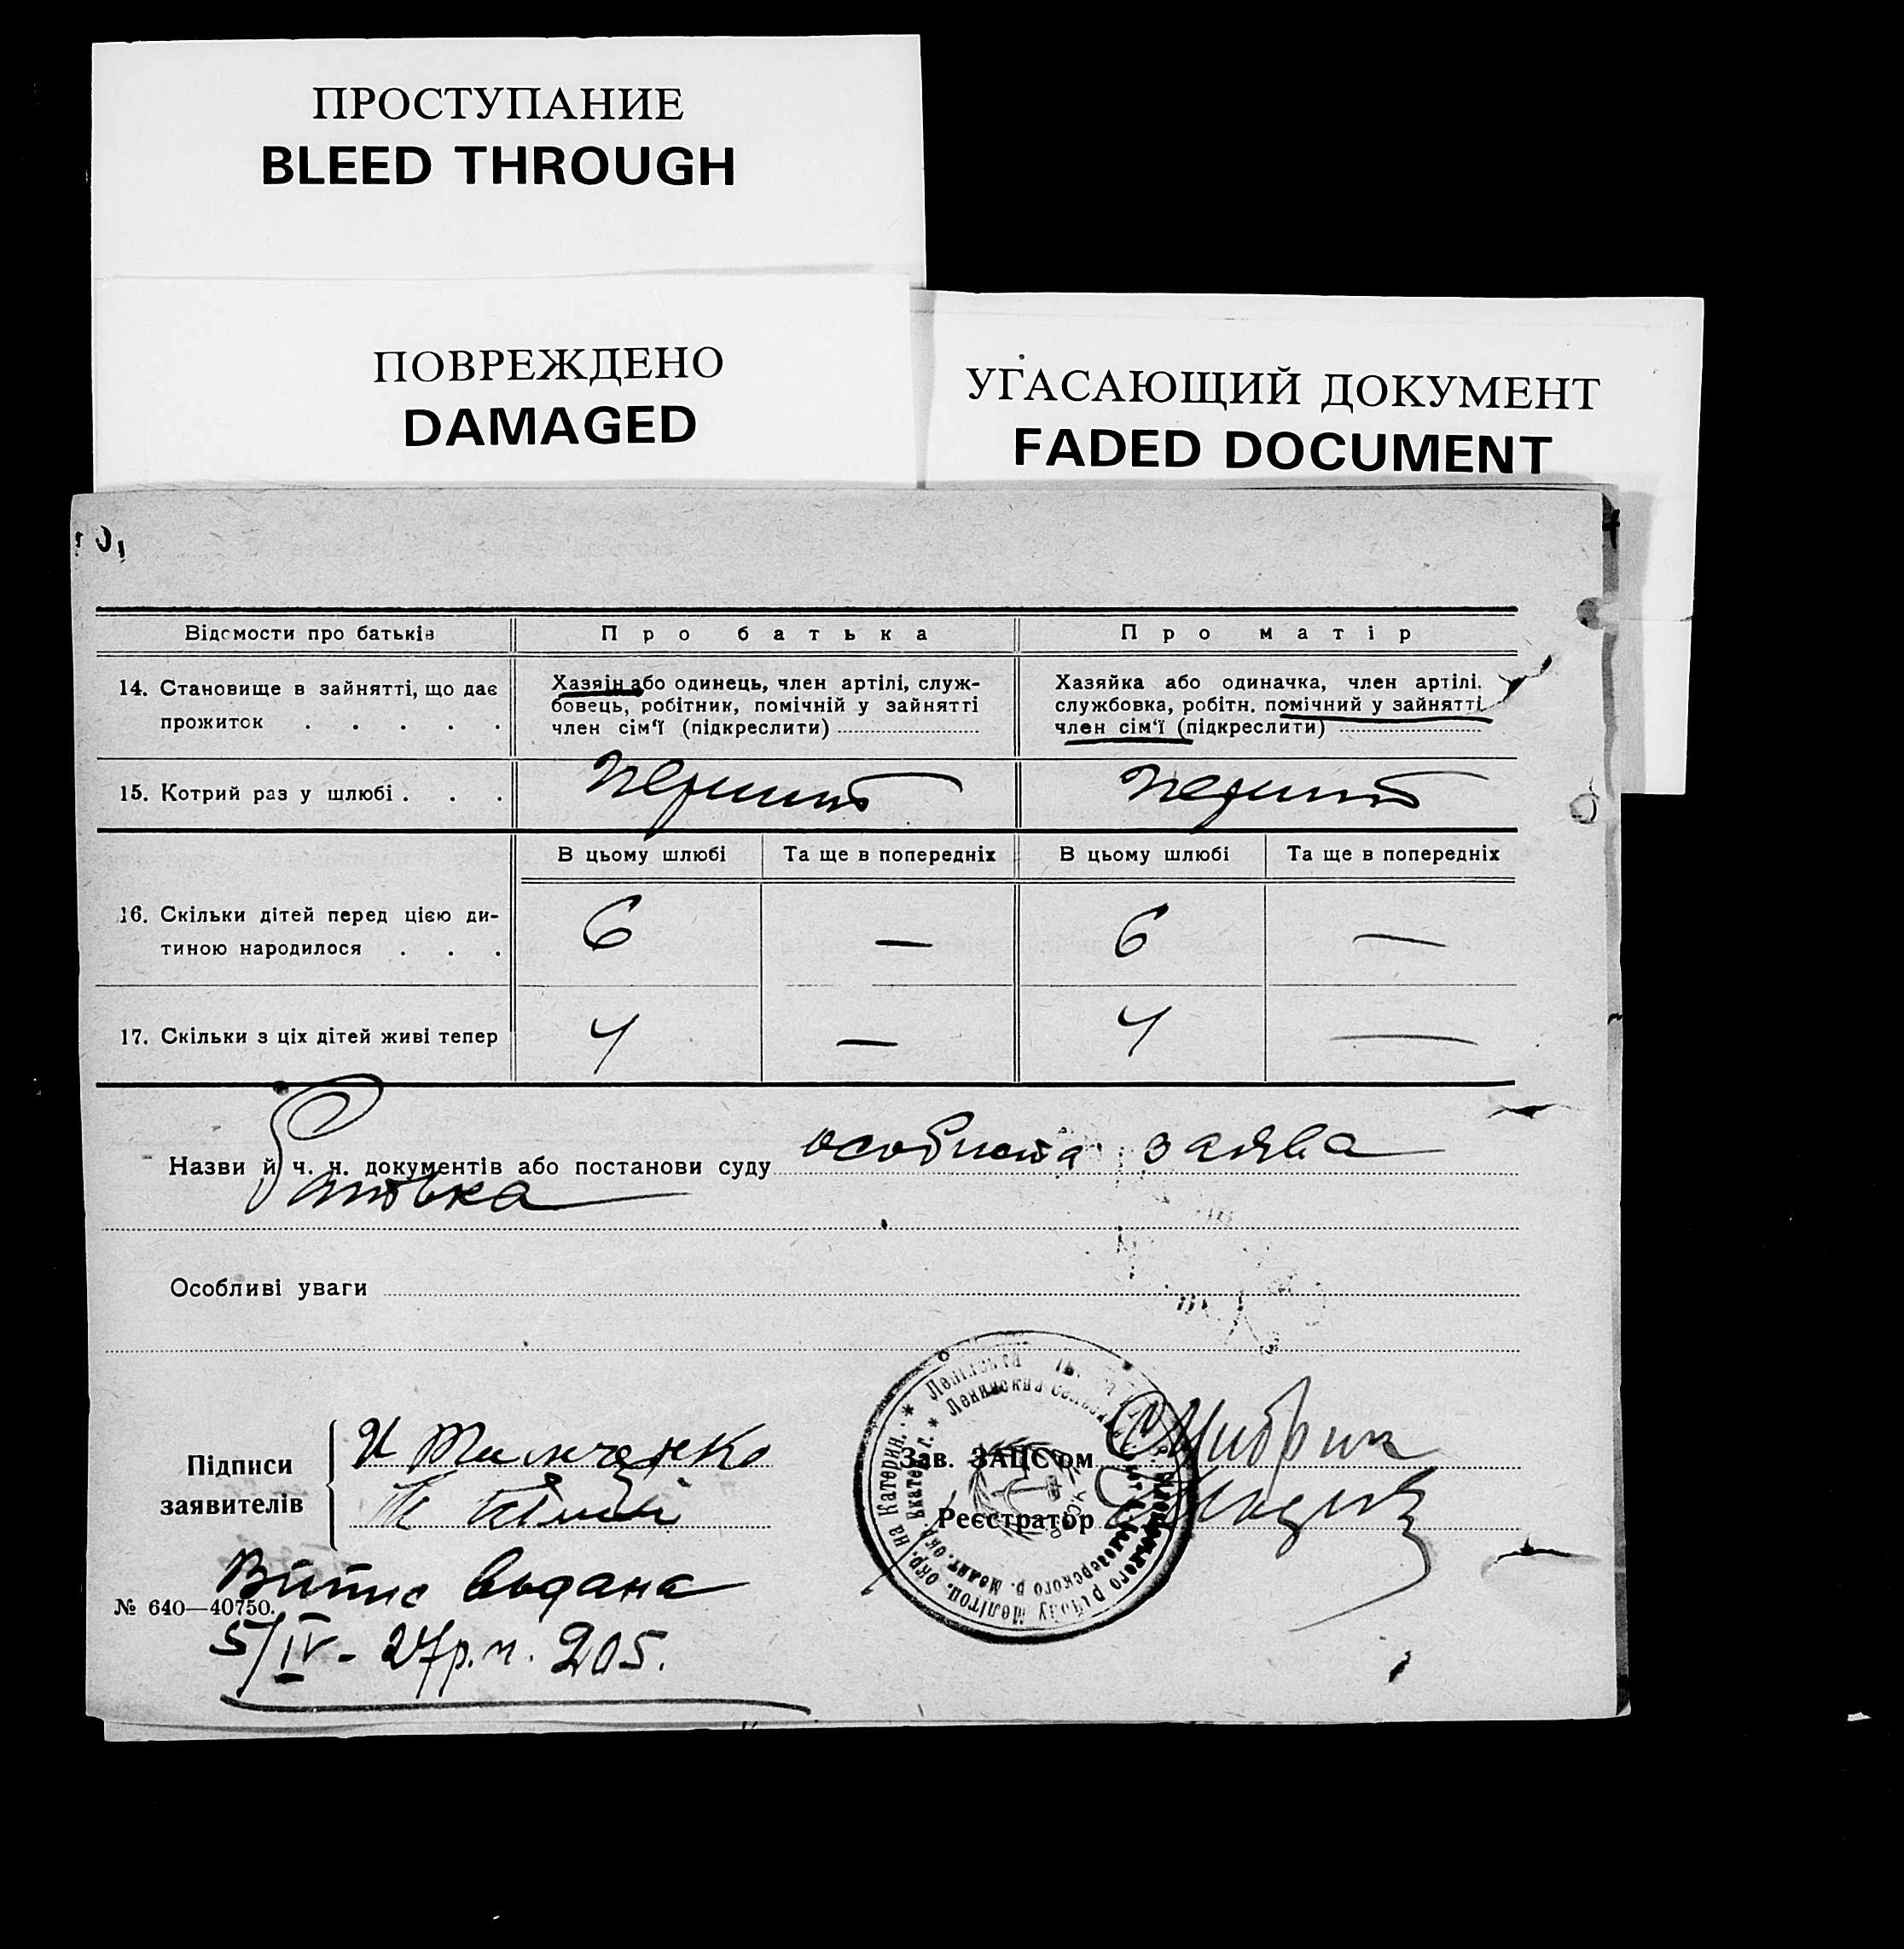 ПРОСТУПАНИЕ
BLEED THROUGH
ПОВРЕЖДЕНО
DAMAGED
УГАСАЮЩИЙ ДОКУМЕНТ
FADED DOCUMENT
Відомости про батьків
Про батька
Про матір
14. Становище в зайнятті, що дає
прожиток . . . . .
Хазяїн або одинець, член артілі, служ-
бовець, робітник, помічній у зайнятті
член сім'ї (підкреслити)
Хазяйка або одиначка, член артілі,
службовка, робітн. помічний у зайнятті
член сім'ї (підкреслити)
15. Котрий раз у шлюбі . . .
В цьому шлюбі
Та ще в попередніх
В цьому шлюбі
Та ще в попередніх
16. Скільки дітей перед цією ди-
тиною народилося . . .
6
—
6
—
17. Скільки з ціх дітей живі тепер
4
—
4
—
Назви й ч. ч. документів або постанови суду особиста заява
Особливі уваги
Підписи
заявителів
Зав. ЗАЦС'ом
Реєстратор
Витис видана
№ 640—40750.
5/IV - 27р. н. 205.